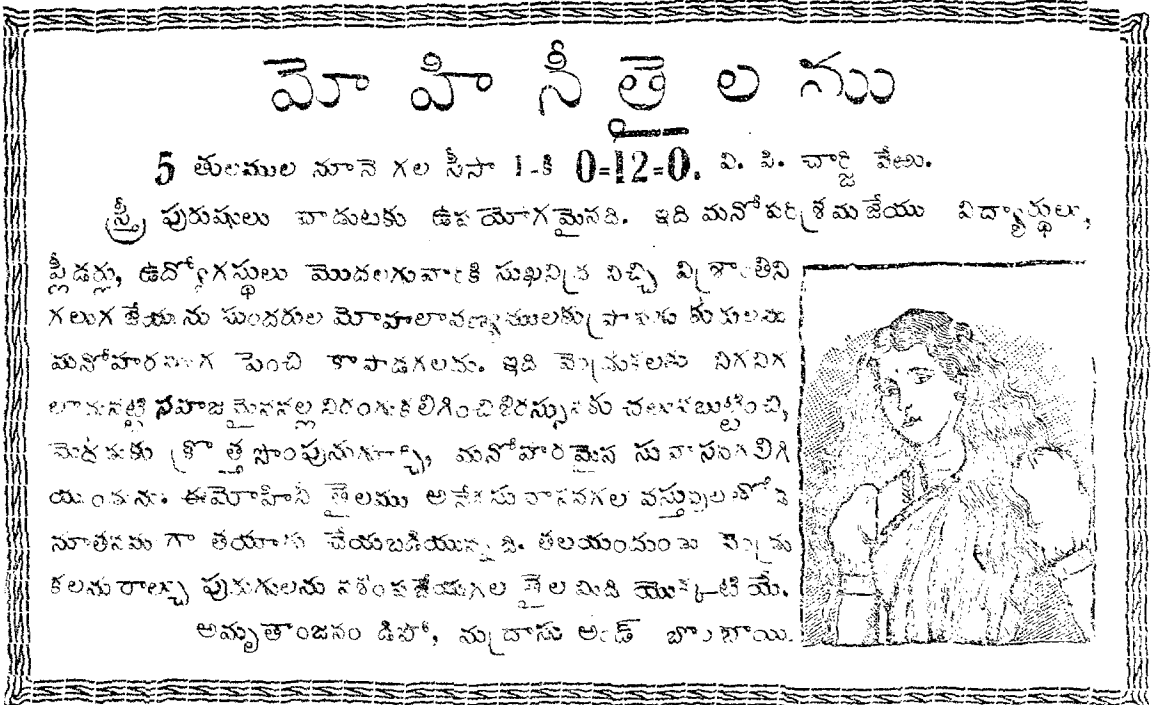 మోహినీతైలము
5 తులముల నూనె గల సీసా 1-కి 0=12=0. వి. పి. చార్జి వేఱు.
స్త్రీ పురుషులు వాడుటకు ఉపయోగమైనది. ఇది మనోపరిశ్రమ జేయు విద్యార్థులు,
ప్లీడర్లు, ఉద్యోగస్థులు మొదలగువారికి సుఖనిద్ర నిచ్చి విశ్రాంతిని
గలుగ జేయును సుందరుల మోహలావణ్యములకు కురులను
మనోహరముగ పెంచి కాపాడగలదు. ఇది వెండ్రుకలను నిగనిగ
లాడునట్టి సహజమైననల్లనిరంగుకలిగించి శిరస్సునకు చలువబుట్టించి,
మెదడుకు క్రొత్త సొంపునుగూర్చి, మనోహరమైన సువాసనగలిగి
యుండును. ఈమోహినీ తైలము అనేకసువాసనగల వస్తువులతోడ
నూతనముగా తయారు చేయబడియున్నది. తలయందుండు వెండ్రు
కలనురాల్చు పురుగులను నశింపజేయగల తైల మిది యొక్కటి యే.
అమృతాంజనం డిపో, మద్రాసు అండ్ బొంబాయి.